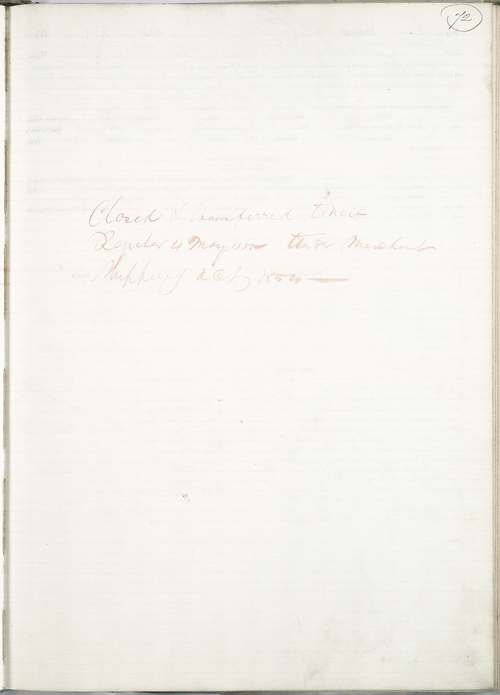 72
Closed & transferred to new
Register 4 May under Merchant
Shipping Act 1854